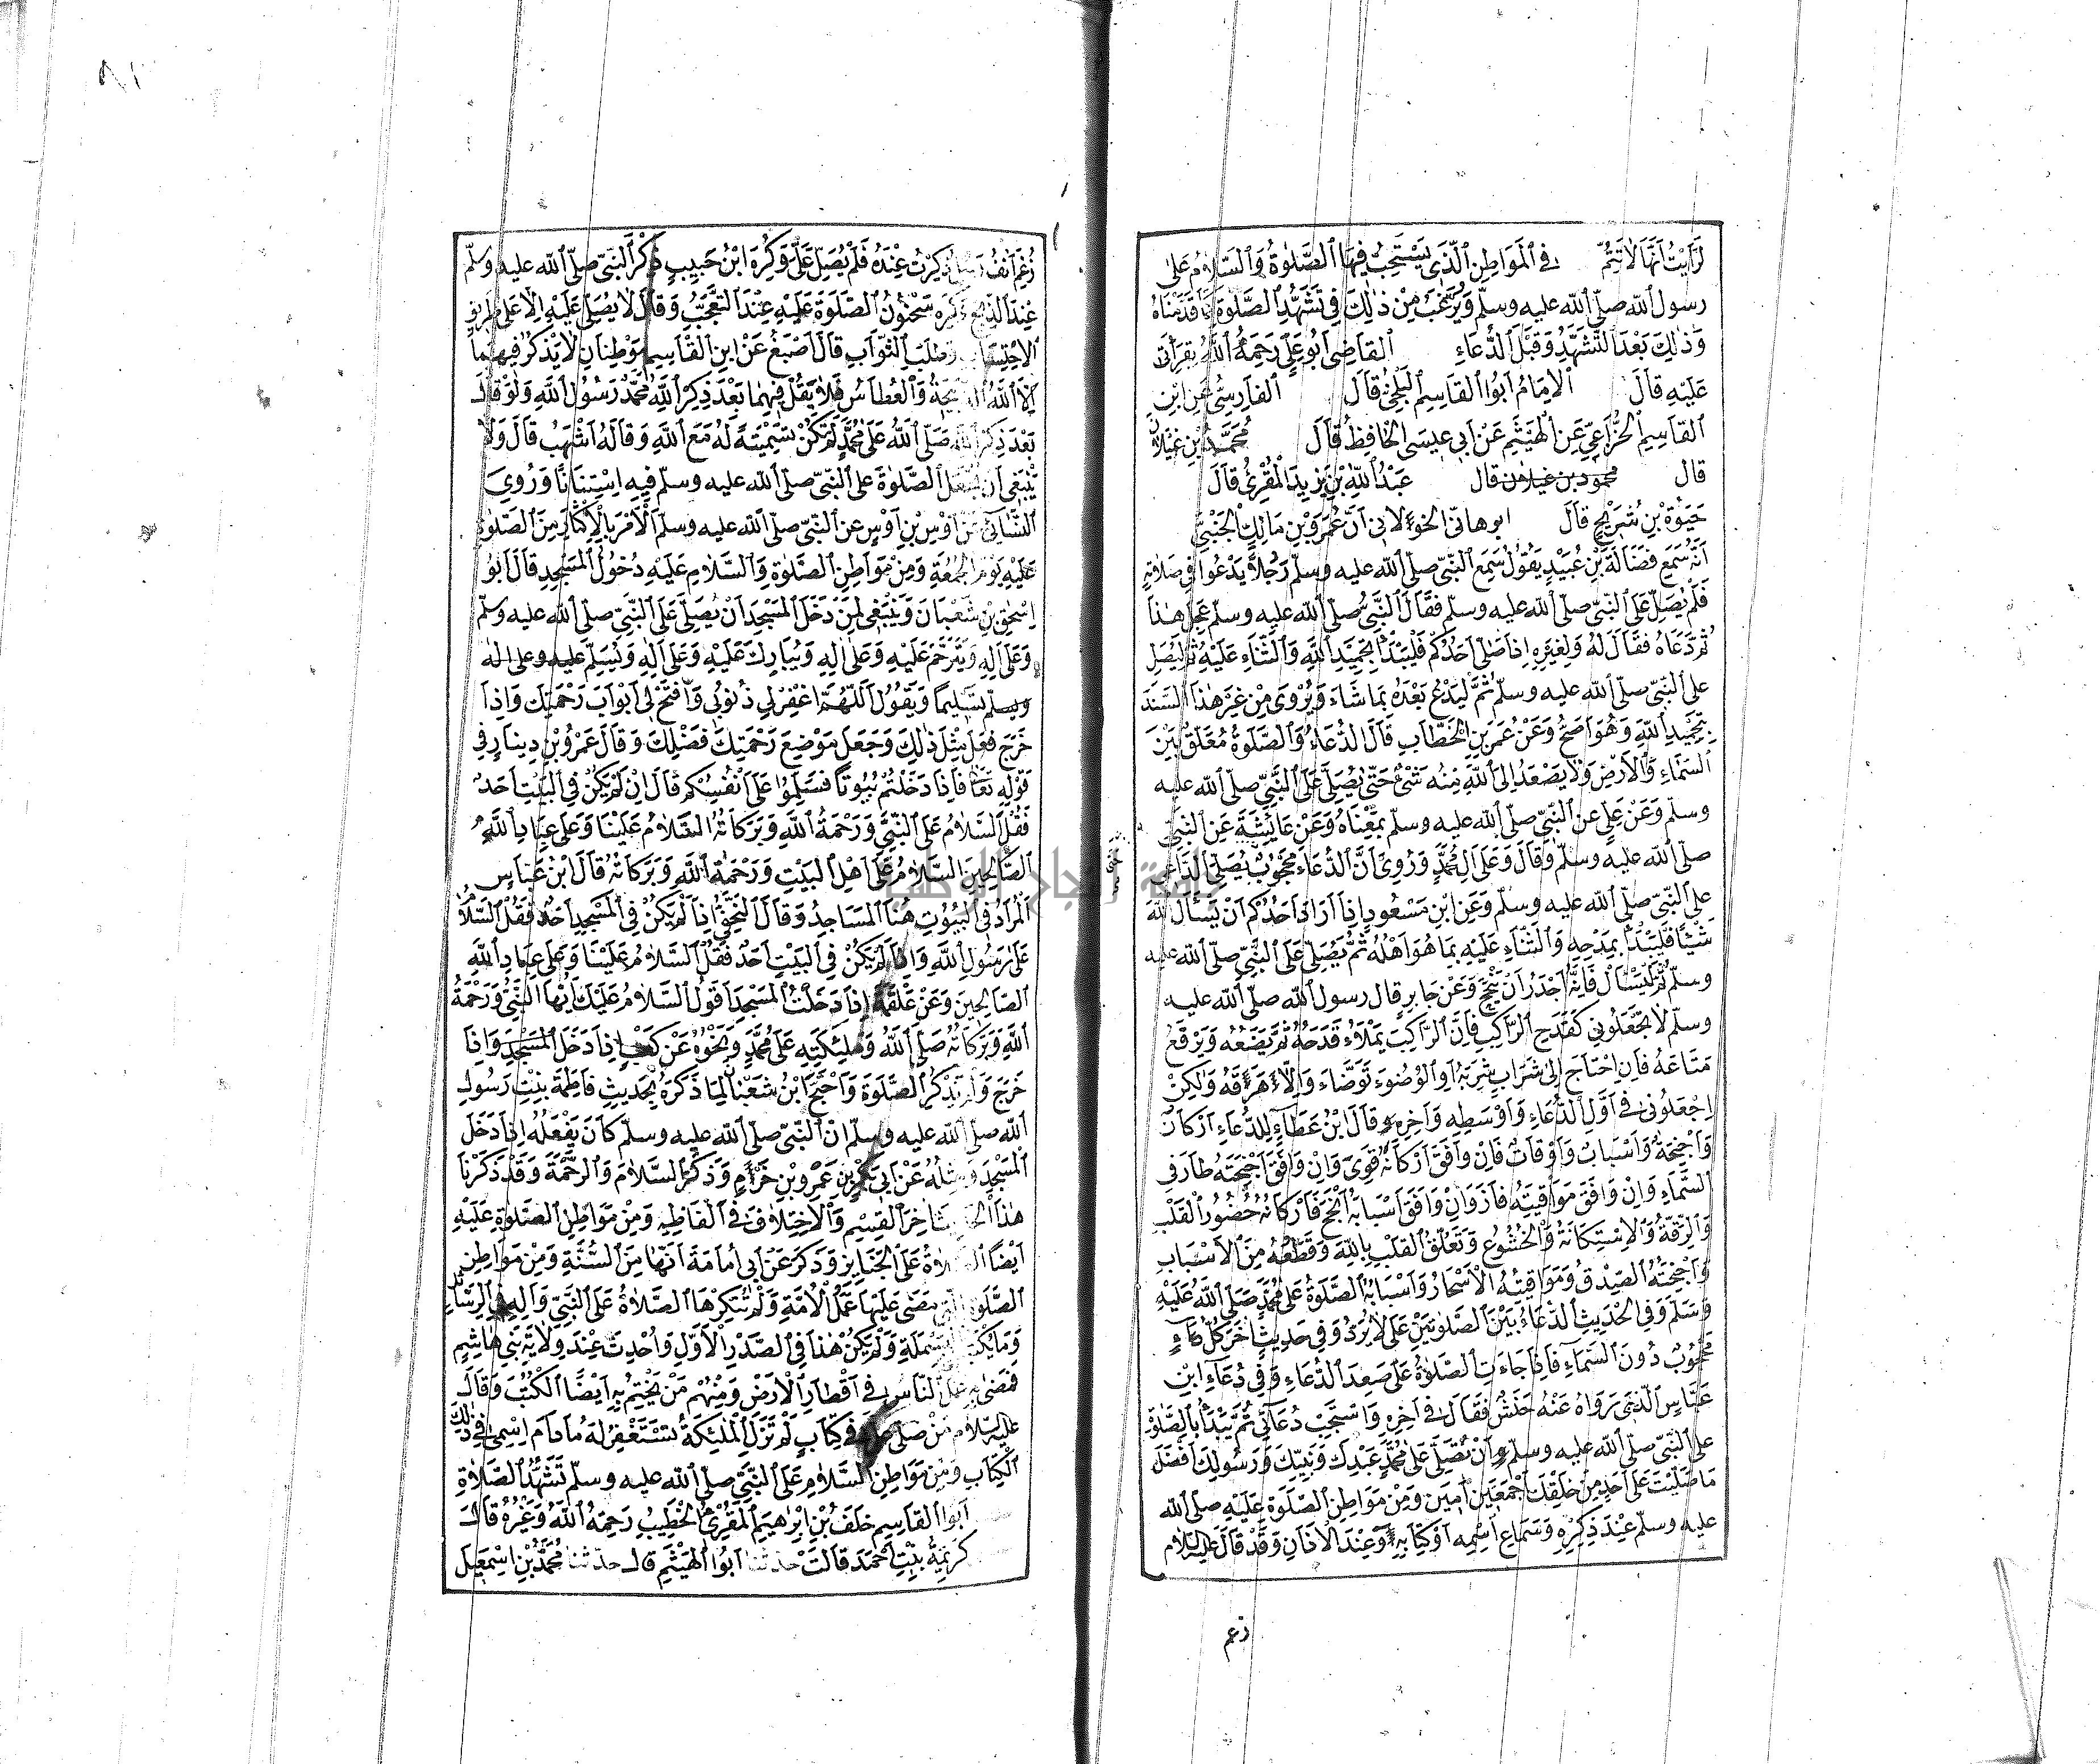 لَرَأَيْتُ أَنَّهَا لَا تَتِمُّ فِي ٱلْمَوَاطِنِ ٱلَّذِي يُسْتَحَبُّ فِيهَا ٱلصَّلٰوةُ وَٱلسَّلَامُ عَلَى
رسول ٱللّٰه صلّى ٱللّٰه عليه وسلّم وَيُرَغَّبُ مِنْ ذٰلِكَ فِي تَشَهُّدِ ٱلصَّلٰوةِ كَمَا قَدَّمْنَاهُ
وَذٰلِكَ بَعْدَ ٱلتَّشَهُّدِ وَقَبْلَ ٱلدُّعَاءِ ٱلْقَاضِي أَبُو عَلِيٍّ رَحِمَهُ ٱللّٰهُ بِقِرَاءَتِي
عَلَيْهِ قَالَ ٱلْإِمَامُ أَبُوا ٱلْقَاسِمِ ٱلْبَلْخِيُّ قَالَ ٱلْفَارِسِيُّ عَنِ ابْنِ
ٱلْقَاسِمِ ٱلْخُزَاعِيِّ عَنِ ٱلْهَيْثَمِ عَنْ أَبِي عِيسَى ٱلْحَافِظِ قَالَ مُحَمَّدُ بْنِ غَيْلَانَ
قال محمود بن غيلان قال عَبْدُ ٱللّٰهِ بْنِ يَزِيدَ ٱلْمُقْرِئُ قَالَ
حَيْوَةُ بْنِ شُرَيْحٍ قَالَ ابو هانى ٱلخولانى أَنَّ عُمَرَوَ بْنِ مَالِكِ ٱلْجَنْبِيَّ
أَنَّهُ سَمِعَ فَضَالَةَ بْنَ عُبَيْدٍ يَقُولُ سَمِعَ ٱلنَّبِيّ صلّى ٱللّٰه عليه وسلّم رَجُلًا يَدْعُوا فِي صَلَاتِهِ
فَلَمْ يُصَلِّ عَلَى ٱلنَّبِيّ صلّى ٱللّٰه عليه وسلّم فَقَالَ ٱلنَّبِيُّ صلّى ٱللّٰه عليه وسلّم عَجِلَ هٰذَا
ثُمَّ دَعَاهُ فَقَالَ لَهُ وَلِغَيْرِهِ إِذَا صَلَّى أَحَدُكُمْ فَلْيَبْدَأْ بِتَحْمِيدِ ٱللّٰهِ وَٱلثَّنَاءِ عَلَيْهِ ثُمَّ لْيُصَلِّ
عَلَى ٱلنَّبِيّ صلّى ٱللّٰه عليه وسلّم ثُمَّ لْيَدْعُ بَعْدَهُ بِمَا شَاءَ وَيُرْوَى مِنْ غَيْرِ هٰذَا ٱلسَّنَدِ
بِتَمْجِيدِ ٱللّٰهِ وَهُوَ أَصَحُّ وَعَنْ عُمَرَ بْنِ ٱلْخَطَّابِ قَالَ ٱلدُّعَاءُ وَٱلصَّلَوةُ مُعَلَّقٌ بَيْنَ
ٱلسَّمَاءِ وَٱلْأَرْضِ وَلَا يَصْعَدُ إِلَى ٱللّٰهِ مِنْهُ شَىْءٌ حَتَّى يُصَلَّى عَلَى ٱلنَّبِيّ صلّى ٱللّٰه عليه
وسلّم وَعَنْ عَلِيٍّ عن ٱلنَّبِيّ صلّى ٱللّٰه عليه وسلّم بِمَعْنَاهُ وَعَنْ عَائِشَةَ عَنِ ٱلنَّبِيّ
صلّى ٱللّٰه عليه وسلّم وَقَالَ وَعَلَى آلِ مُحَمَّدٍ وَرُوِيَ أَنَّ ٱلدُّعَاءَ مَحْجُوبٌ يُصَلِّي ٱلدَّاعِي
عَلَى ٱلنَّبِيّ صلّى ٱللّٰه عليه وسلّم وَعَنِ ابْنِ مَسْعُودٍ إِذَا أَرَادَ أَحَدُكُمْ أَنْ يَسْأَلَ ٱللّٰهَ
شَيْئًا فَلْيَبْدَأْ بِمَدْحِهِ وَٱلثَّنَاءِ عَلَيْهِ بِمَا هُوَ أَهْلُهُ ثُمَّ يُصَلِّي عَلَى ٱلنَّبِيّ صلّى ٱللّٰه عليه
وسلّم ثُمَّ لْيَسْأَلْ فَإِنَّهُ أَجْدَرُ أَنْ يَنْجَحَ وَعَنْ جَابِرٍ قال رسول ٱللّٰه صلّى ٱللّٰه عليه
وسلّم لَا تَجْعَلُونِي كَقَدَحِ ٱلرَّاكِبِ فَإِنَّ ٱلرَّاكِبَ يَمْلَأُ قَدَحَهُ ثُمَّ يَضَعُهُ وَيَرْفَعُ
مَتَاعَهُ فَإِنِ احْتَاجَ إِلَى شَرَابٍ شَرِبَهُ أَوِ ٱلْوُضُوءِ تَوَضَّأَ وَإِلَّا هَرَقَهُ وَلٰكِنْ
اِجْعَلُونِي فِي أَوَّلِ ٱلدُّعَاءِ وَأَوْسَطِهِ وَآخِرِهِ قَالَ ابْنُ عَطَاءٍ لِلدُّعَاءِ أَرْكَانٌ
وَأَجْنِحَةٌ وَأَسْبَابٌ وَأَوْقَاتٌ فَإِنْ وَافَقَ أَرْكَانَهُ قَوِيَ وَإِنْ وَافَقَ أَجْنِحَتَهُ طَارَ فِي
ٱلسَّمَاءِ وَإِنْ وَافَقَ مَوَاقِيتَهُ فَازَ وَإِنْ وَافَقَ أَسْبَابَهُ أَنْجَحَ فَأَرْكَانُهُ حُضُورُ ٱلْقَلْبِ
وَٱلرِّقَّةُ وَٱلْاِسْتِكَانَةُ وَٱلْخُشُوعُ وَتَعَلُّقُ ٱلْقَلْبِ بِاللّٰهِ وَقَطْعُهُ مِنَ ٱلْأَسْبَابِ
وَأَجْنِحَتُهُ ٱلصِّدْقُ وَمَوَاقِيتُهُ ٱلْأَسْحَارُ وَأَسْبَابُهُ ٱلصَّلَوةُ عَلَى مُحَمَّدٍ صَلَّى ٱللّٰهُ عَلَيْهِ
وَسَلَّمَ وَفِي ٱلْحَدِيثِ ٱلدُّعَاءُ بَيْنَ ٱلصَّلٰوتَيْنِ عَلَيَّ لَا يُرَدُّ وَفِي حَدِيثٍ آخَرَ كُلُّ دُعَاءٍ
مَحْجُوبٌ دُونَ ٱلسَّمَاءِ فَإِذَا جَاءَتِ ٱلصَّلٰوةُ عَلَيَّ صَعِدَ ٱلدُّعَاءُ وَفِي دُعَاءِ ابْنِ
عَبَّاسٍ ٱلَّذِي رَوَاهُ عَنْهُ حَنَشٌ فَقَالَ فِي آخِرِهِ وَاسْتَجِبْ دُعَائِي ثُمَّ يَبْدَأُ بِالصَّلٰوةِ
على ٱلنَّبِيّ صلّى ٱللّٰه عليه وسلّم أَنْ تُصَلِّيَ عَلَى مُحَمَّدٍ عَبْدِكَ وَنَبِيِّكَ وَرَسُولِكَ أَفْضَلَ
مَا صَلَّيْتَ عَلَى أَحَدٍ مِنْ خَلْقِكَ أَجْمَعِينَ آمِينَ وَمِنْ مَوَاطِنِ ٱلصَّلَوةِ عَلَيْهِ صلّى ٱللّٰه
عليه وسلّم عِنْدَ ذِكْرِهِ وَسَمَاعِ اسْمِهِ أَوْ كِتَابِهِ وَعِنْدَ ٱلْأَذَانِ وَقَدْ قَالَ عليه السّلام
رغم
رَغِمَ أَنْفُ رَجُلٍ ذُكِرْتُ عِنْدَهُ فَلَمْ يُصَلِّ عَلَيَّ وَكَرِهَ ابْنُ حَبِيبٍ ذِكْرَ ٱلنَّبِيّ صلّى ٱللّٰه عليه وسلّم
عِنْدَ ٱلذَّبْحِ وَكَرِهَ سَحْنُونُ ٱلصَّلَوةَ عَلَيْهِ عِنْدَ ٱلتَّعَجُّبِ وَقَالَ لَا يُصَلَّى عَلَيْهِ إِلَّا عَلَى طَرِيقِ
ٱلْاِحْتِسَابِ وَطَلَبِ ٱلثَّوَابِ قَالَ أَصْبَغُ عَنِ ابْنِ ٱلْقَاسِمِ مَوْطِنَانِ لَا يُذْكَرُ فِيهِمَا
إِلَّا ٱللّٰهُ ٱلذَّبِيحَةُ وَٱلْعُطَاسُ فَلَا يَقُلْ فِيهِمَا بَعْدَ ذِكْرِ ٱللّٰهِ مُحَمَّدٌ رَسُولُ ٱللّٰهِ وَلَوْ قَالَ
بَعْدَ ذِكْرِ ٱللّٰهِ صَلَّى ٱللّٰهُ عَلَى مُحَمَّدٍ لَمْ تَكُنْ تَسْمِيَتَهُ لَهُ مَعَ ٱللّٰهِ وَقَالَهُ أَشْهَبُ قَالَ وَلَا
يَنْبَغِي أَنْ تُجْعَلَ ٱلصَّلٰوةَ عَلَى ٱلنَّبِيّ صلّى ٱللّٰه عليه وسلّم فِيهِ اسْتِنَانًا وَرُوِيَ
ٱلنَّسَائِيُّ عَنْ أَوْسِ بْنِ أَوْسٍ عن ٱلنَّبِيّ صلّى ٱللّٰه عليه وسلّم ٱلْأَمْرَ بِالْإِكْثَارِ مِنَ ٱلصَّلٰوةِ
عَلَيْهِ يَوْمَ ٱلْجُمُعَةِ وَمِنْ مَوَاطِنِ ٱلصَّلٰوةِ وَٱلسَّلَامِ عَلَيْهِ دُخُولُ ٱلْمَسْجِدِ قَالَ أَبُو
إِسْحٰقَ بْنِ شَعْبَانَ وَيَنْبَغِي لِمَنْ دَخَلَ ٱلْمَسْجِدَ أَنْ يُصَلِّيَ عَلَى ٱلنَّبِيّ صلّى ٱللّٰه عليه وسلّم
وَعَلَى آلِهِ وَيَتَرَحَّمَ عَلَيْهِ وَعَلَى آلِهِ وَيُبَارِكَ عَلَيْهِ وَعَلَى آلِهِ وَيُسَلِّمَ عليه وعلى اله
ويسلّم تَسْلِيمًا وَيَقُولَ ٱللّٰهُمَّ اغْفِرْ لِي ذُنُوبِي وَافْتَحْ لِي أَبْوَابَ رَحْمَتِكَ وَإِذَا
خَرَجَ فَعَلَ مِثْلَ ذٰلِكَ وَجَعَلَ مَوْضِعَ رَحْمَتِكَ فَضْلِكَ وَقَالَ عَمْرُو بْنِ دِينَارٍ فِي
قَوْلِهِ تَعَالَى فَإِذَا دَخَلْتُمْ بُيُوتًا فَسَلِّمُوا عَلَى أَنْفُسِكُمْ قَالَ إِنْ لَمْ يَكُنْ فِي ٱلْبَيْتِ أَحَدٌ
فَقُلِ ٱلسَّلَامُ عَلَى ٱلنَّبِيِّ وَرَحْمَةُ ٱللّٰهِ وَبَرَكَاتُهُ ٱلسَّلَامُ عَلَيْنَا وَعَلَى عِبَادِ ٱللّٰهِ
ٱلصَّالِحِينَ ٱلسَّلَامُ عَلَى أَهْلِ ٱلْبَيْتِ وَرَحْمَةُ ٱللّٰهِ وَبَرَكَاتُهُ قَالَ ابْنُ عَبَّاسٍ
ٱلْمُرَادُ فِي ٱلْبُيُوتِ هُنَا ٱلْمَسَاجِدُ وَقَالَ ٱلنَّخَعِيُّ إِذَا لَمْ يَكُنْ فِي ٱلْمَسْجِدِ أَحَدٌ فَقُلِ ٱلسَّلَامُ
عَلَى رَسُولِ ٱللّٰهِ وَإِذَا لَمْ يَكُنْ فِي ٱلْبَيْتِ أَحَدٌ فَقُلِ ٱلسَّلَامُ عَلَيْنَا وَعَلَى عِبَادِ ٱللّٰهِ
ٱلصَّالِحِينَ وَعَنْ عَلْقَمَةَ إِذَا دَخَلْتُ ٱلْمَسْجِدَ أَقُولُ ٱلسَّلَامُ عَلَيْكَ أَيُّهَا ٱلنَّبِيُّ وَرَحْمَةُ
ٱللّٰهِ وَبَرَكَاتُهُ صَلَّى ٱللّٰهُ وَمَلٰئِكَتِهِ عَلَى مُحَمَّدٍ وَنَحْوُهُ عَنْ كَعْبٍ إِذَا دَخَلَ ٱلْمَسْجِدَ وَإِذَا
خَرَجَ وَلَمْ يَذْكُرِ ٱلصَّلَوةَ وَاحْتَجَّ ابْنُ شَعْبَانَ لِمَا ذَكَرَهُ بِحَدِيثِ فَاطِمَةَ بِنْتِ رَسُولِ
ٱللّٰه صلّى ٱللّٰه عليه وسلّم انّ ٱلنَّبِيّ صلّى ٱللّٰه عليه وسلّم كَانَ يَفْعَلُهُ إِذَا دَخَلَ
ٱلْمَسْجِدَ وَمِثْلُهُ عَنْ أَبِي بَكْرِ بْنِ عَمْرِو بْنِ حَزْمٍ وَذَكَرَ ٱلسَّلَامَ وَٱلرَّحْمَةَ وَقَدْ ذَكَرْنَا
هٰذَا ٱلْحَدِيثَ آخِرَ ٱلْقِسْمِ وَٱلْاِخْتِلَافَ فِي أَلْفَاظِهِ وَمِنْ مَوَاطِنِ ٱلصَّلٰوةِ عَلَيْهِ
أَيْضًا ٱلصَّلَاةُ عَلَى ٱلْجَنَائِزِ وَذَكَرَ عَنْ أَبِي أُمَامَةَ أَنَّهَا مِنَ ٱلسُّنَّةِ وَمِنْ مَوَاطِنِ
ٱلصَّلَوةِ ٱلَّتِي مَضَى عَلَيْهَا عَمَلُ ٱلْأُمَّةِ وَلَمْ تُنْكِرْهَا ٱلصَّلَاةُ عَلَى ٱلنَّبِيِّ وَآلِهِ فِي ٱلرَّسَائِلِ
وَمَا يُكْتَبُ بَعْدَ ٱلْبَسْمَلَةِ وَلَمْ يَكُنْ هٰذَا فِي ٱلصَّدْرِ ٱلْأَوَّلِ وَأُحْدِثَ عِنْدَ وِلَايَةِ بَنِي هَاشِمٍ
فَمَضَى بِهِ عَمَلُ ٱلنَّاسِ فِي أَقْطَارِ ٱلْأَرْضِ وَمِنْهُمْ مَنْ يَخْتِمُ بِهِ أَيْضًا ٱلْكُتُبَ وَقَالَ
عليه السّلام مَنْ صَلَّى عَلَيَّ فِي كِتَابٍ لَمْ تَزَلِ ٱلْمَلٰئِكَةُ تَسْتَغْفِرُ لَهُ مَا دَامَ اسْمِي فِي ذٰلِكَ
ٱلْكِتَابِ وَمِنْ مَوَاطِنِ ٱلسَّلَامِ عَلَى ٱلنَّبِيّ صلّى ٱللّٰه عليه وسلّم تَشَهُّدُ ٱلصَّلَاةِ
أَبُوا ٱلْقَاسِمِ خَلَفُ بْنِ إِبْرٰهِيمَ ٱلْمُقْرِئُ ٱلْخَطِيبُ رَحِمَهُ ٱللّٰهُ وَغَيْرُهُ قَالَ
كَرِيمَةُ بِنْتِ أَحْمَدَ قَالَتْ حدثنا أَبُوا ٱلْهَيْثَمِ قال حدثنا مُحَمَّدُ بْنِ إِسْمٰعِيلَ